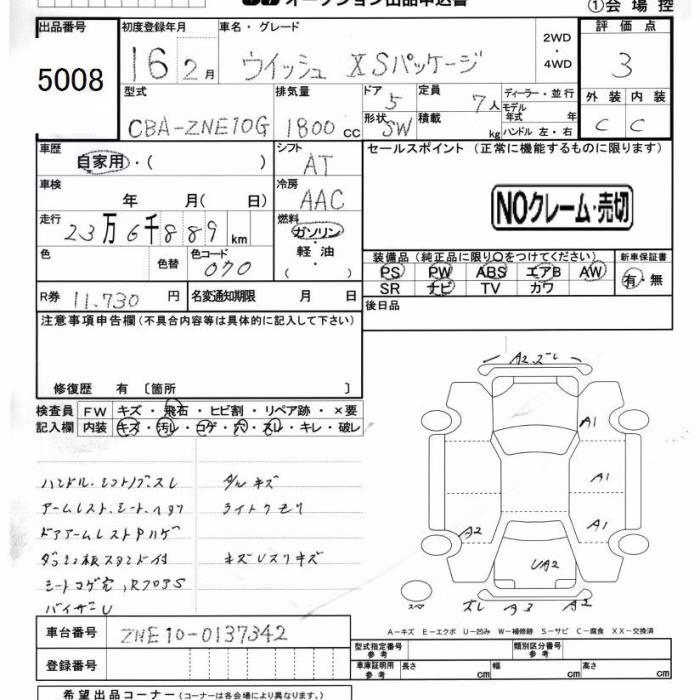 オークション出品申込書
①会場控
出品番号
5008
初度登録年月
16 2月
車名・グレード
ウイッシュ XSパッケージ
2WD
・
4WD
評価点
3
外装 内装
C C
型式
CBA-ZNE10G
排気量
1800cc
ドア 5
形状 SW
定員 7人
積載 kg
ディーラー・並行
モデル
年式 年
ハンドル 左・右
車歴
自家用・( )
シフト
AT
セールスポイント (正常に機能するものに限ります)
NOクレーム・売切
車検
年 月( 日)
冷房
AAC
走行
23万6千889km
燃料
ガソリン
・
軽油
( )
色
色替
色コード
070
装備品 (純正品に限り○をつけてください)
PS PW ABS エアB AW
SR ナビ TV カワ
新車保証書
有・無
R券 11,730円
名変通知期限 月 日
後日品
注意事項申告欄 (不具合内容等は具体的に記入して下さい)
修復歴 有 〔箇所 〕
検査員
記入欄
FW キズ・飛石・ヒビ割・リペア跡・×要
内装 キズ・汚レ・コゲ・穴・スレ・キレ・破レ
ハンドル・シフトノブスレ
アームレスト・シート・ヘタリ
ドアアームレストPハゲ
ダッシュ板スタンド付
シートコゲ穴,
バイザーU
ダルキズ
ライトクモリ
キズUスリキズ
A2ズレ
A1
A1
A1
A2
UA2
スペ
ズレ A3 A2
A-キズ E-エクボ U-凹み W-補修跡 S-サビ C-腐食 XX-交換済
車台番号 ZNE10-0137342
登録番号
型式指定番号
参考
類別区分番号
参考
車庫証明用
参考
長さ cm 幅 cm 高さ cm
希望出品コーナー (コーナーは各会場により異なります。)